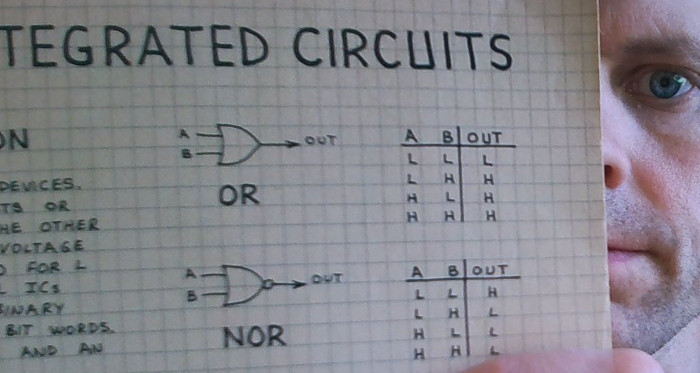 TEGRATED CIRCUITS
ON
DEVICES.
TS OR
HE OTHER
VOLTAGE
D FOR L
L ICs
BINARY
BIT WORDS.
AND AN
A
B
OUT
OR
A B OUT
L L L
L H H
H L H
H H H
A
B
OUT
NOR
A B OUT
L L H
L H L
H L L
H H L